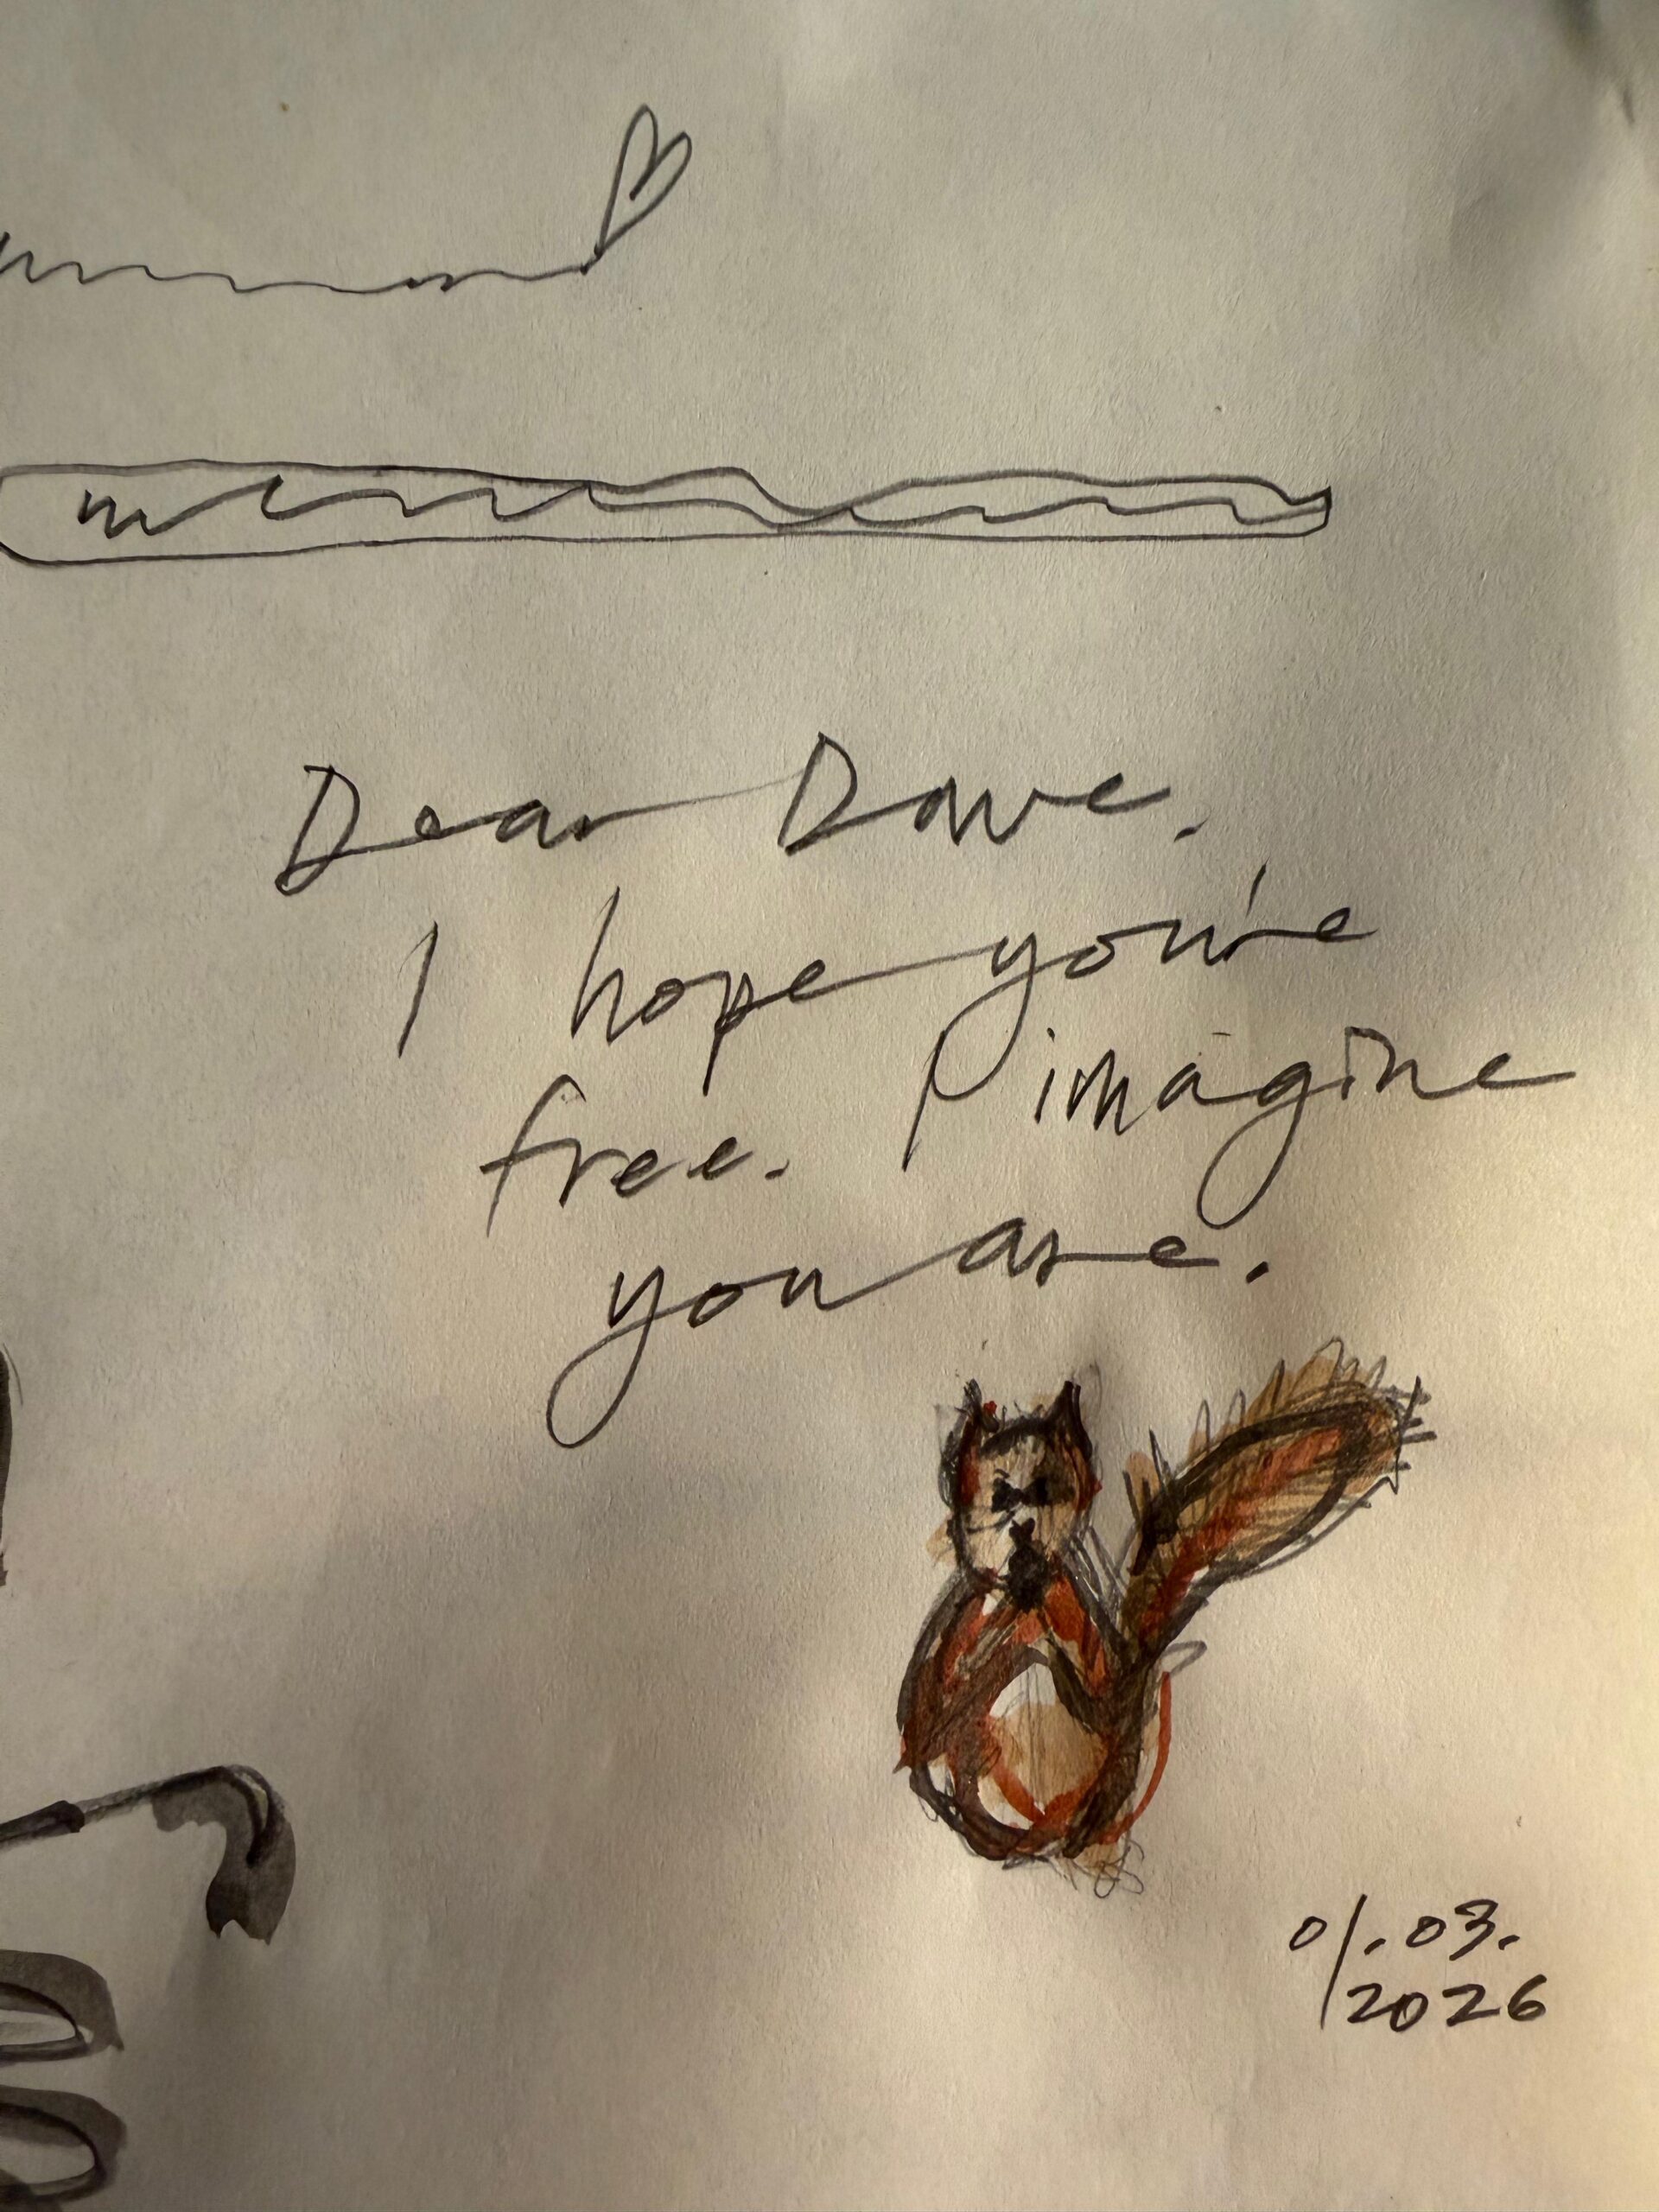 Dear Dave.
I hope you're
free. I imagine
you are.
01.03.
2026